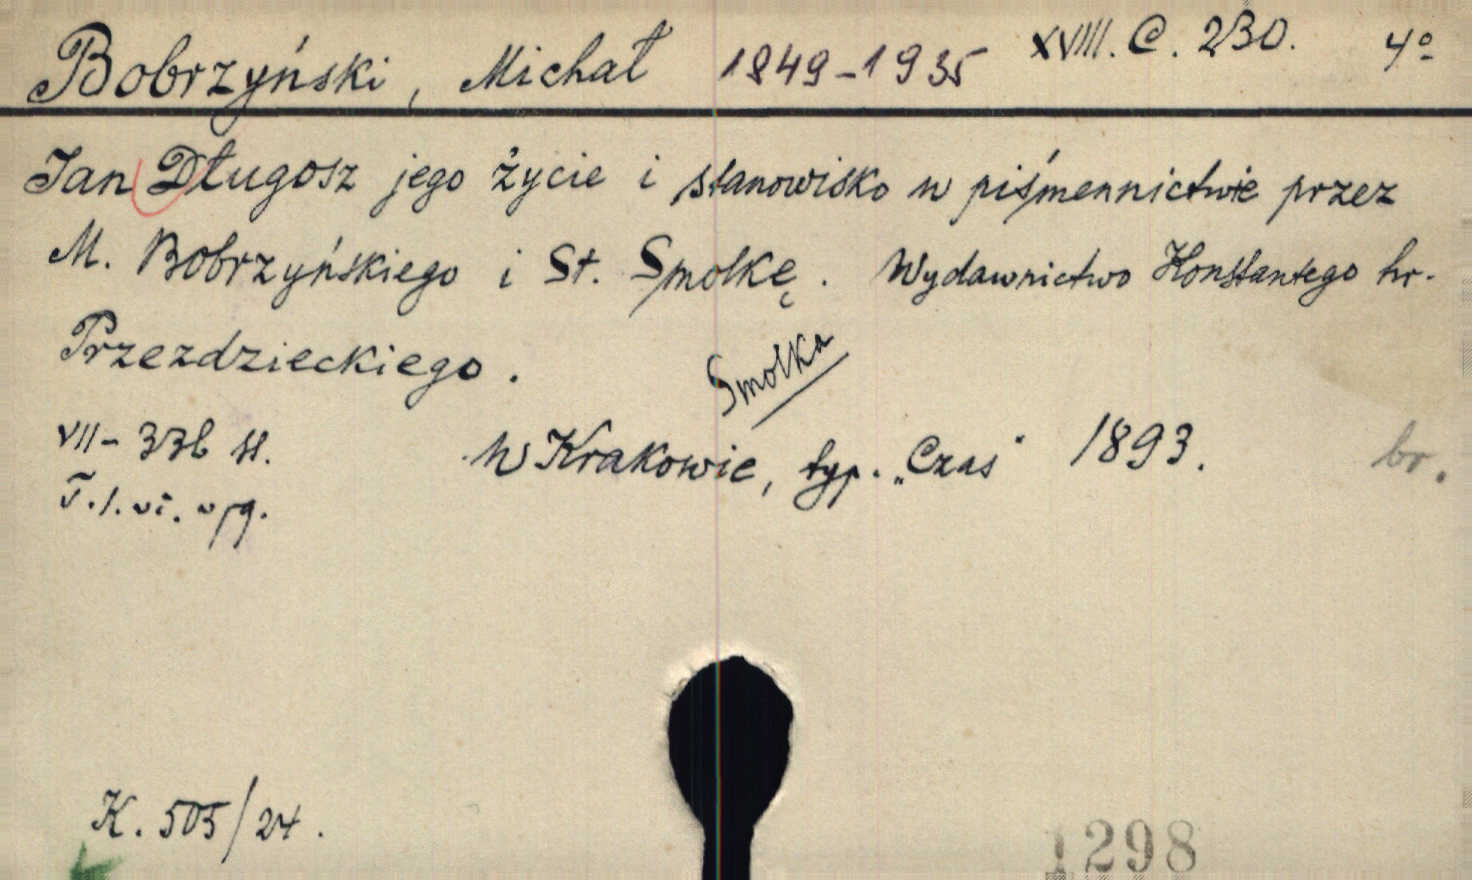 Bobrzyński, Michał 1849-1935 XVIII. C. 230. 4º
Jan Długosz jego życie i stanowisko w piśmennictwie przez
M. Bobrzyńskiego i St. Smolkę. Wydawnictwo Konstantego hr.
Przezdzieckiego.
Smolka
VII- 336
W Krakowie, typ. „Czas” 1893. br.
K. 505/24.
1298